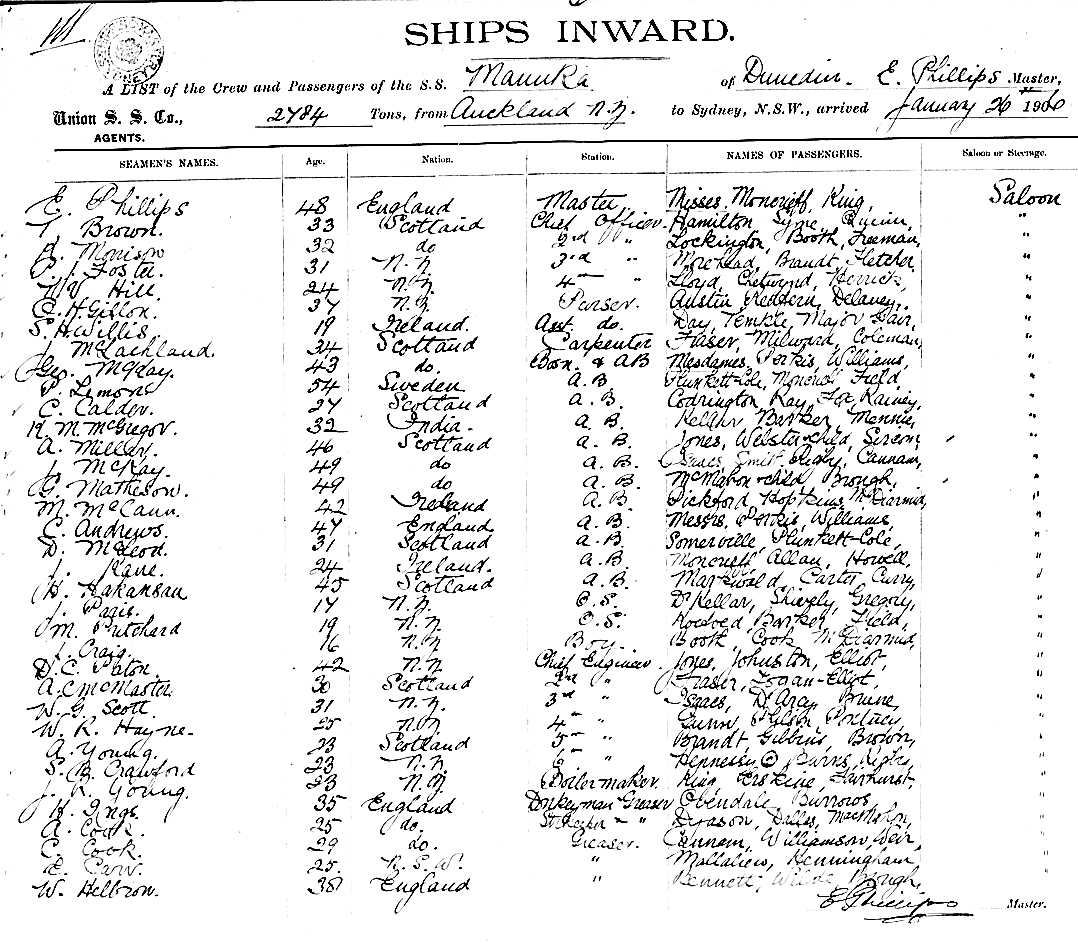 SHIPS INWARD.
A LIST of the Crew and Passengers of the S.S. Manuka of Dunedin. E. Phillips Master,
Union S. S. Co., 2484 Tons, from Auckland N.Z. to Sydney, N.S.W., arrived January 26th 1906
AGENTS.
SEAMEN'S NAMES. Age. Nation. Station. NAMES OF PASSENGERS. Saloon or Steerage.
E. Phillips 48 England Master Misses, Moncrieff, King, Saloon
T. Brown. 33 Scotland Chief Officer Hamilton Syme, Quinn, "
Morison 32 do 2nd " Lockington, Booth, Freeman, "
Foster. 31 N.Z. 3rd " Morehead, Brandt, Fletcher, "
Hill 24 N.Z. 4th " Lloyd, Chetwynd, Herrick, "
Gibson. 37 N.Z. Purser. Austin Redfern, Delaney. "
S. H. Willis 19 Ireland. Asst. do. Day, Temple, Major Fair, "
McLachland. 34 Scotland Carpenter Fraser, Milward, Coleman, "
Geo. McKay. 43 do. Bosn. & AB Mesdames, Perkis, Williams, "
P. Lemon 54 Sweden A.B Plunkett-Cole, Field "
C. Calder. 27 Scotland A.B. Codrington Kay, Fox, Rainey, "
McGregor. 32 India. A.B. Kellar, Barker, Mennie, "
A. Miller. 46 Scotland A.B. Jones, Webster & child, "
J. McKay. 49 do A.B. Isaacs, Smit, Rigby, Cannam, "
G. Matheson. 49 do A.B. McMahon & child, Brough, "
M. McCann. 42 Ireland A.B Pickford, Hopkins, McDiarmid, "
C. Andrews. 47 England A.B. Messrs, Perkis, Williams, "
D. McLeod. 31 Scotland A.B. Somerville, Plunkett-Cole, "
J. Kane. 24 Ireland. A.B. Moncrieff, Allan, Howell, "
H. Hakansan 45 Scotland A.B. Markwald, Carter, Curry, "
J. Paris. 17 N.Z. O.S. Dr Kellar, Shively, Gregory, "
M. Pritchard 19 N.Z. O.S. Barker, Field, "
J. Craig. 16 N.Z Boy. Booth, Cook, McDiarmid, "
D. C. Paton. 42 N.Z Chief Engineer. Jones, Johnston, Elliot, "
A. C McMaster. 30 Scotland 2nd " Fraser, Logan-Elliot, "
W. G. Scott. 31 N.Z. 3rd " Isaacs, D'Arcy, "
W. R. Hayne. 25 N.Z. 4th " Gunn, "
A. Young. 23 Scotland 5th " Brandt, Gibbins, Brown, "
Crawford 23 N.Z. 6th " Hennessy, Burns, Rigby, "
J. R. Young. 23 N.Z. Boilermaker. King, Erskine, Fairhurst, "
H. Ings. 35 England Donkeyman Greaser Ebendale, Burrows "
A. Cook. 25 do. " " Dyason, Dalles, MacMahn, "
C. Cook. 29 do. Greaser. Cannam, Williamson, Weir, "
Carr. 25. N.S.W. " Mallalieu, Henningham "
W. Helbron. 38 England " Bennett, Wilde, Brough, "
E Phillips Master.